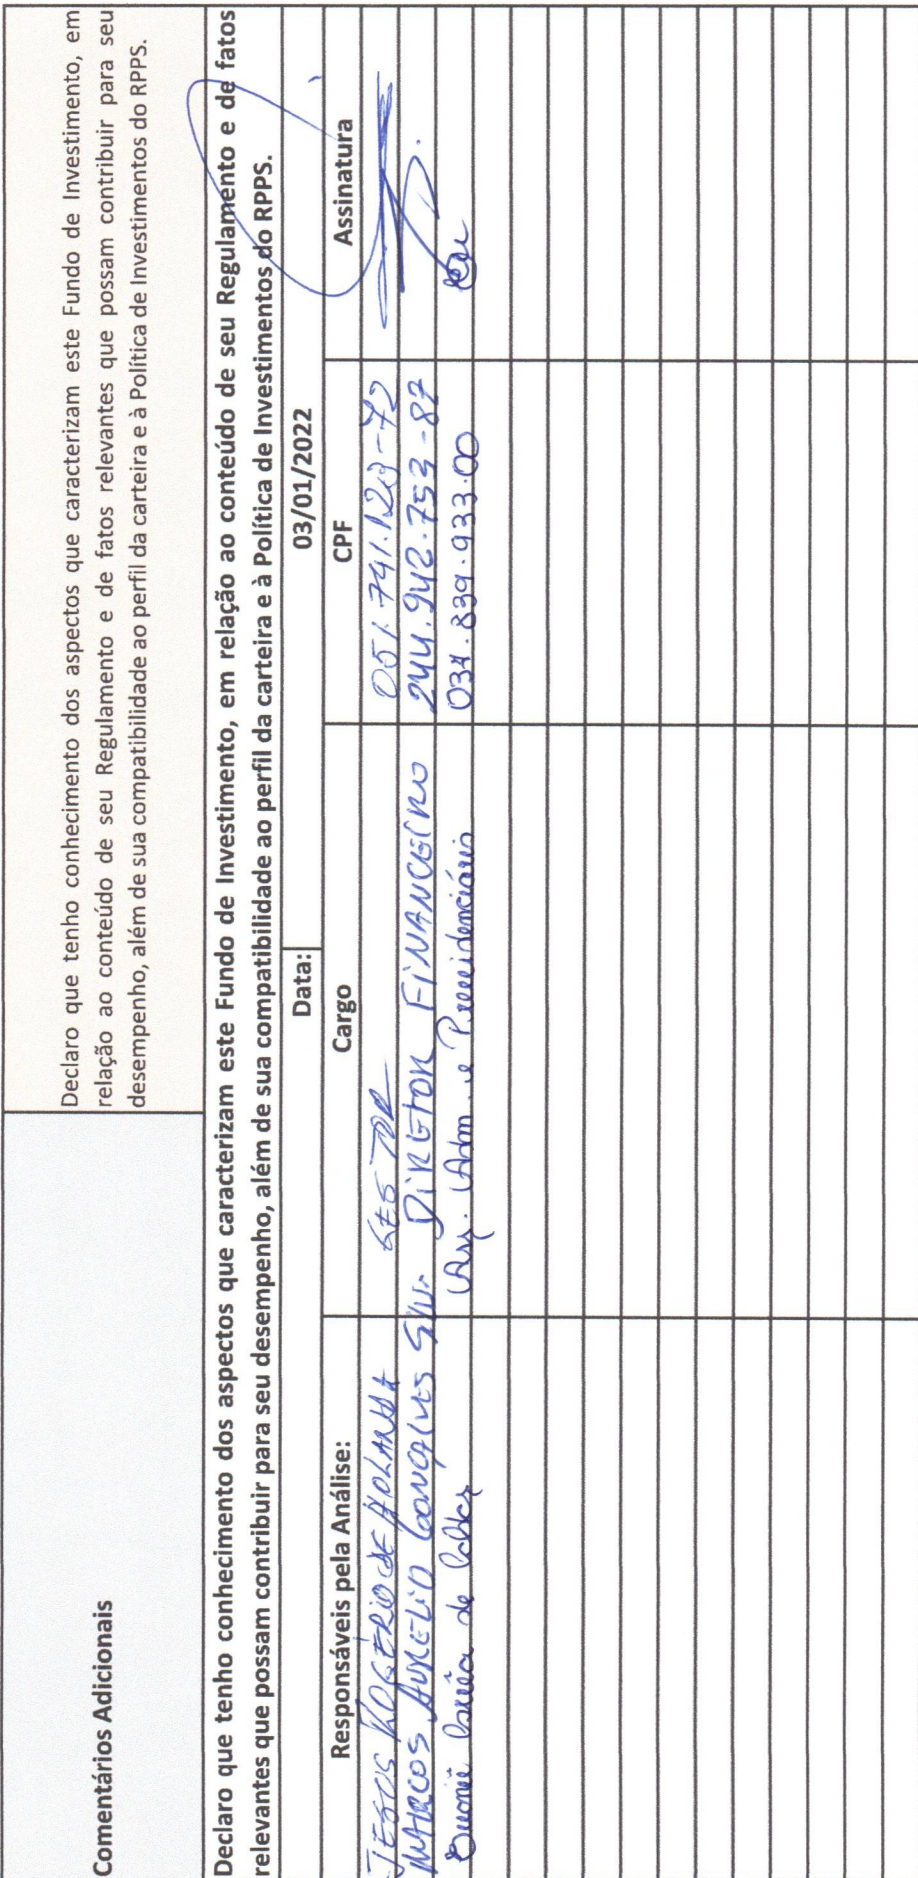 Comentários Adicionais
Declaro que tenho conhecimento dos aspectos que caracterizam este Fundo de Investimento, em
relação ao conteúdo de seu Regulamento e de fatos relevantes que possam contribuir para seu
desempenho, além de sua compatibilidade ao perfil da carteira e à Política de Investimentos do RPPS.
Declaro que tenho conhecimento dos aspectos que caracterizam este Fundo de Investimento, em relação ao conteúdo de seu Regulamento e de fatos
relevantes que possam contribuir para seu desempenho, além de sua compatibilidade ao perfil da carteira e à Política de Investimentos do RPPS.
Data: 03/01/2022
Responsáveis pela Análise: Cargo CPF Assinatura
JESUS ROGÉRIO DE HOLANDA GESTOR 051.741.123-72
MARCOS AURELIO GONÇALVES SILVA DIRETOR FINANCEIRO 244.942.753-87
de Adm. e Previdenciário 037.839.933.00